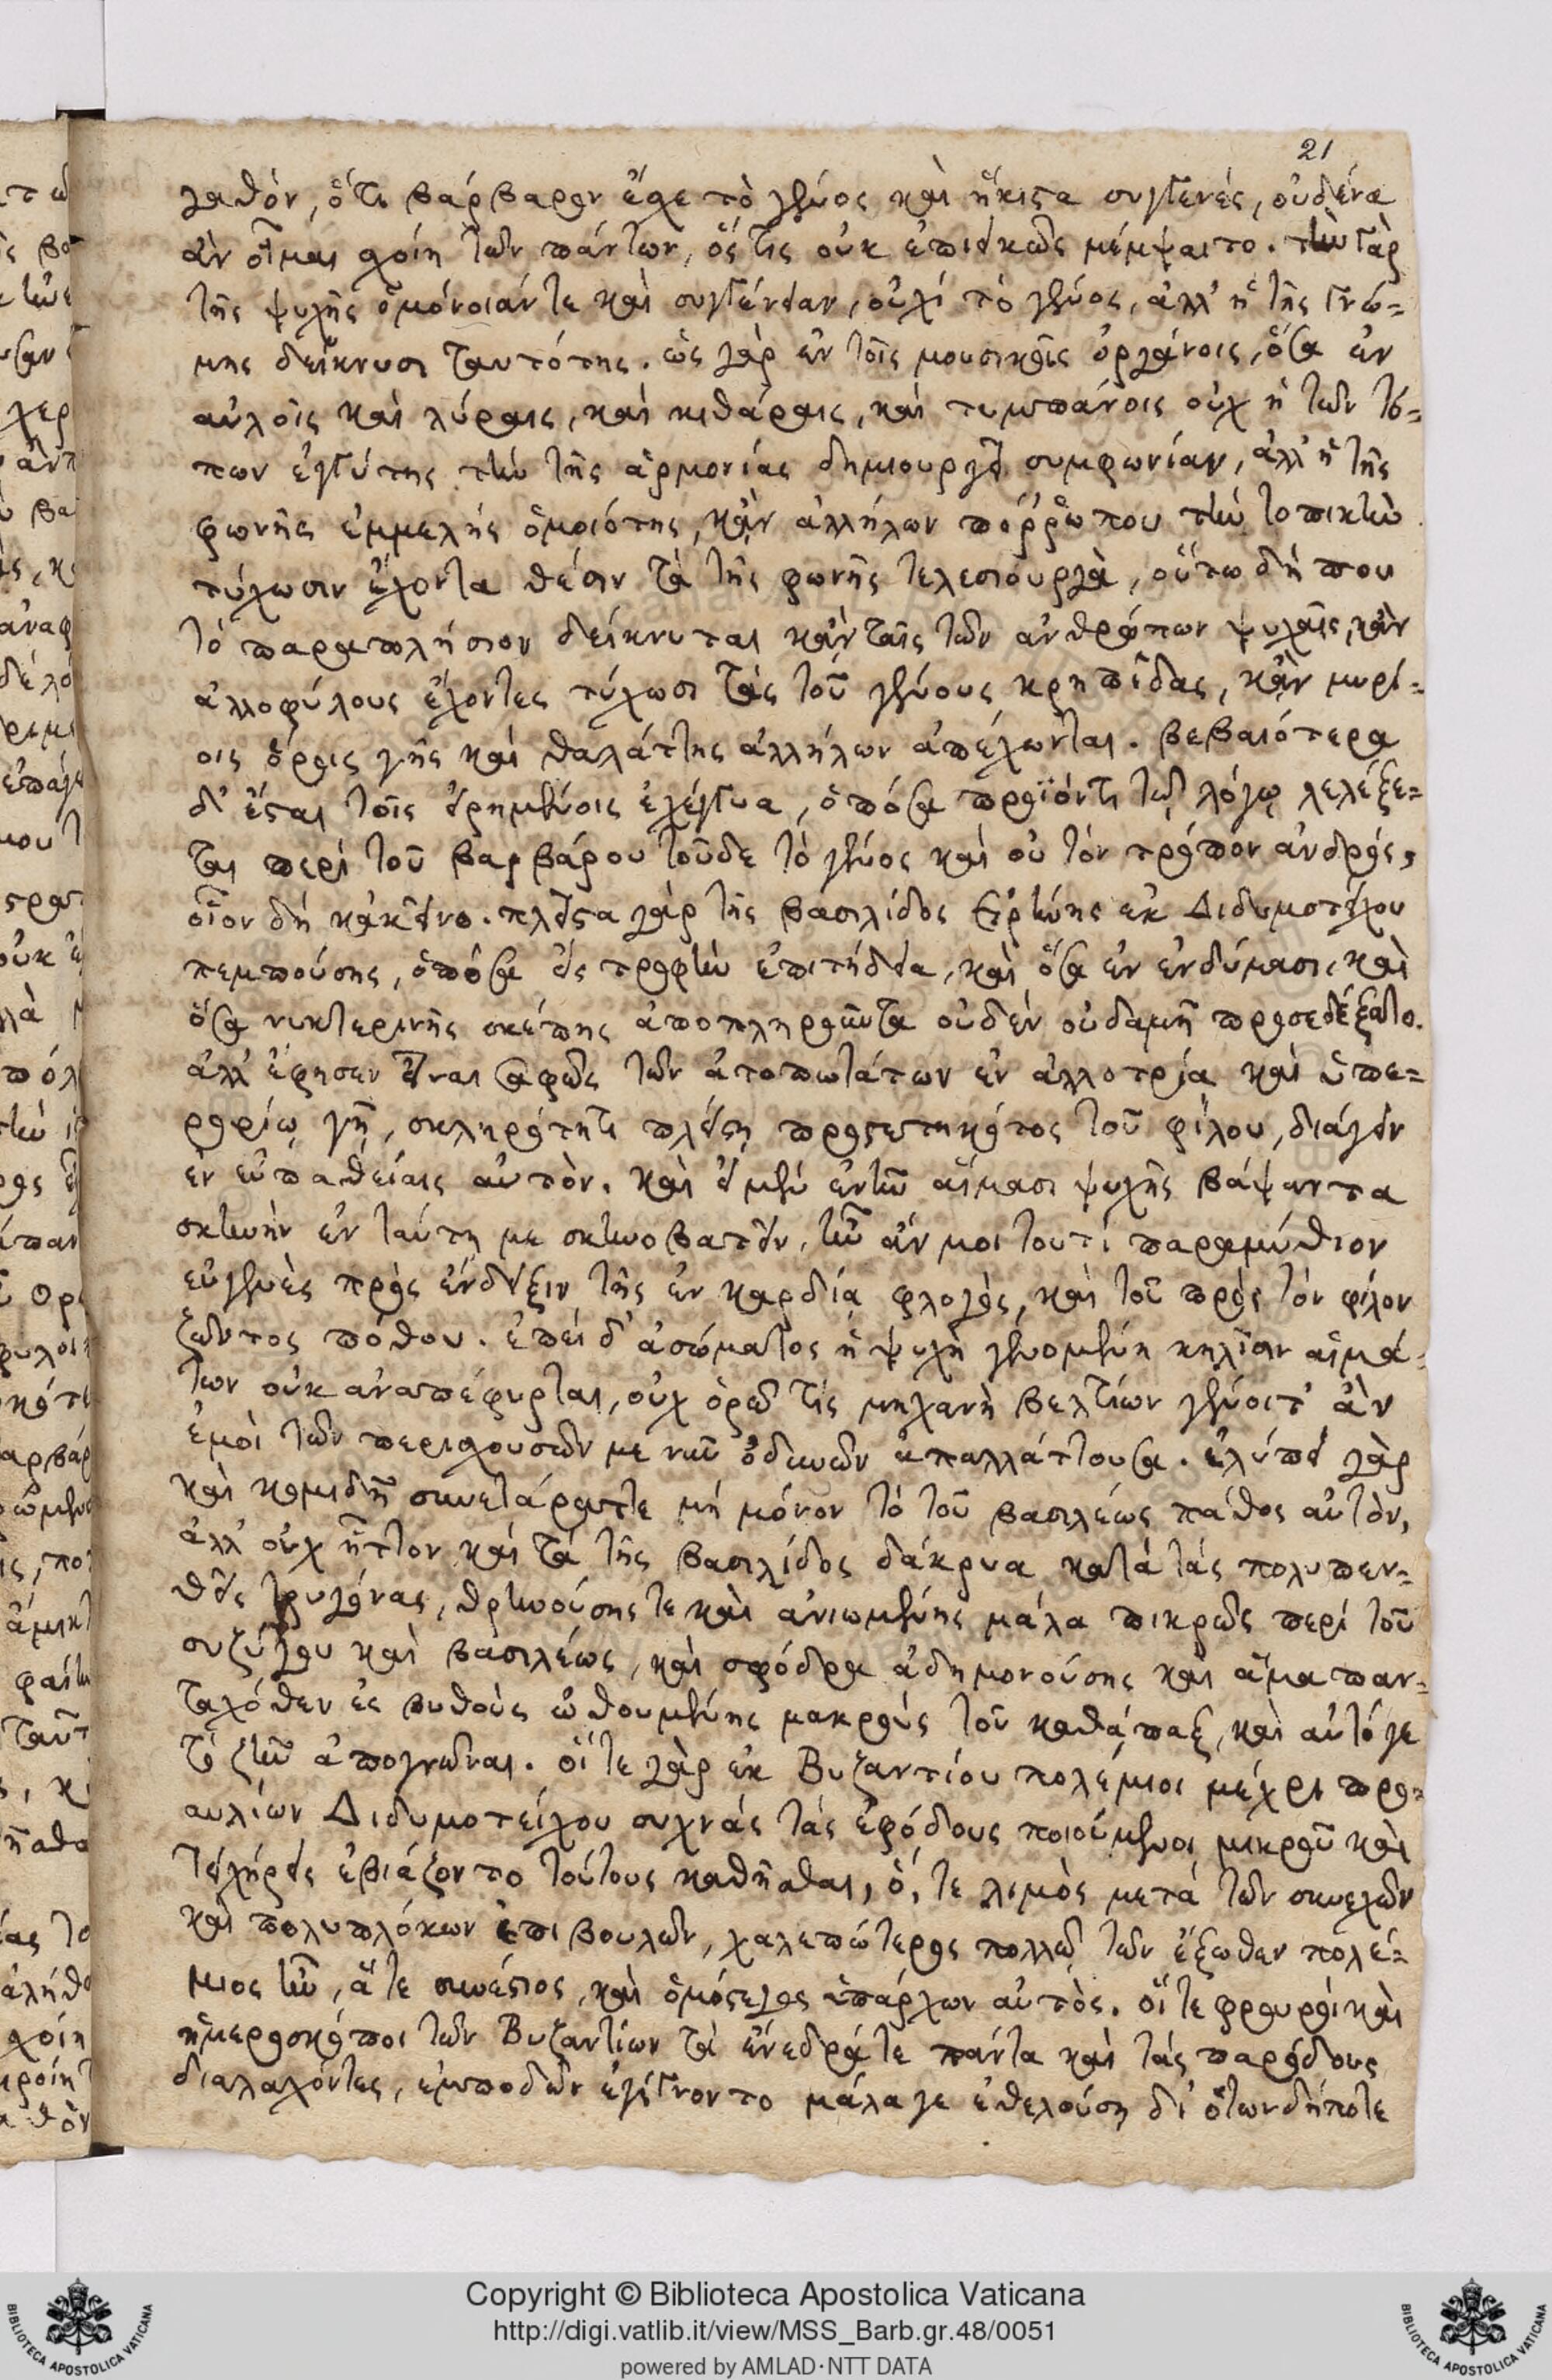 21
γαθόν, ὅτι βάρβαρον ἔχε τὸ γένος καὶ ἥκιστα συγγενές, οὐδένα
ἂν οἶμαι φαίη τῶν πάντων, ὅς τις οὐκ ἐπιεικῶς μέμψαιτο. τὴν γὰρ
τῆς ψυχῆς ὁμόνοιάν τε καὶ συγγένειαν, οὐχὶ τὸ γένος, ἀλλ' ἡ τῆς γνώ-
μης δείκνυσι ταυτότης. ὡς γὰρ ἐν τοῖς μουσικοῖς ὀργάνοις, ὅσα ἐν
αὐλοῖς καὶ λύραις, καὶ κιθάραις, καὶ τυμπάνοις οὐχ ἡ τῶν τό-
πων ἐγγύτης τὴν τῆς ἁρμονίας δημιουργεῖ συμφωνίαν, ἀλλ' ἡ τῆς
φωνῆς ἐμμελὴς ὁμοιότης, κἂν ἀλλήλων πόρρω που τὴν τοπικὴν
τύχωσιν ἔχοντα θέσιν τὰ τῆς φωνῆς τελεσιουργὰ, οὕτω δή που
τὸ παραπλήσιον δείκνυται κἂν ταῖς τῶν ἀνθρώπων ψυχαῖς, κἂν
ἀλλοφύλους ἔχοντες τύχωσι τὰς τοῦ γένους κρηπῖδας, κἂν μυρί-
οις ὅροις γῆς καὶ θαλάττης ἀλλήλων ἀπέχωνται. βεβαιότερα
δ' ἔσται τοῖς εἰρημένοις ἐχέγγυα, ὁπόσα προϊόντι τῷ λόγῳ λελέξε-
ται περὶ τοῦ βαρβάρου τοῦδε τὸ γένος καὶ οὐ τὸν τρόπον ἀνδρός,
οἷον δὴ κἀκεῖνο. πλεῖστα γὰρ τῆς βασιλίδος Εἰρήνης ἐκ Διδυμοτείχου
πεμπούσης, ὁπόσα εἰς τροφὴν ἐπιτήδεια, καὶ ὅσα ἐν ἐνδύμασι, καὶ
ὅσα νυκτερινῆς σκέπης ἀποπληροῦντα οὐδὲν οὐδαμῆ προσεδέξατο.
ἀλλ' ἔφησεν εἶναι σαφῶς τῶν ἀτοπωτάτων ἐν ἀλλοτρίᾳ καὶ ὑπε-
ρορίῳ γῇ, σκληρότητι πλείστῃ προσεστηκότος τοῦ φίλου, διάγειν
ἐν εὐπαθείαις αὐτὸν. καὶ εἰ μὲν ἐνῆν αἵμασι ψυχῆς βάψαντα
σκηνὴν ἐν ταύτῃ με σκηνοβατεῖν, ἦν ἄν μοι τουτὶ παραμύθιον
εὐγενὲς πρὸς ἔνδειξιν τῆς ἐν καρδίᾳ φλογὸς, καὶ τοῦ πρὸς τὸν φίλον
ζῶντος πόθου. ἐπεὶ δ' ἀσώματος ἡ ψυχὴ γενομένη κηλῖσιν αἱμά-
των οὐκ ἀναπέφυρται, οὐχ ὁρῶ τίς μηχανὴ βελτίων γένοιτ' ἂν
ἐμοὶ τῶν περιεχουσῶν με νῦν ὀδυνῶν ἀπαλλάττουσα. ἐλύπει γὰρ
καὶ κομιδῆ συνετάραττε μὴ μόνον τὸ τοῦ βασιλέως πάθος αὐτὸν,
ἀλλ' οὐχ ἧττον καὶ τὰ τῆς βασιλίδος δάκρυα κατὰ τὰς πολυπεν-
θεῖς τρυγόνας, θρηνούσης τε καὶ ἀνιωμένης μάλα πικρῶς περὶ τοῦ
συζύγου καὶ βασιλέως, καὶ σφόδρα ἀδημονούσης καὶ ἅμα παν-
ταχόθεν ἐς βυθοὺς ὠθουμένης μακροὺς τοῦ καθάπαξ, καὶ αὐτό γε
τὸ ζῆν ἀπογνῶναι. οἵ τε γὰρ ἐκ Βυζαντίου πολέμιοι μέχρι προ-
αυλίων Διδυμοτείχου συχνὰς τὰς ἐφόδους ποιούμενοι μικροῦ καὶ
τειχήρεις ἐβιάζοντο τούτους καθῆσθαι, ὅ, τε λιμὸς μετὰ τῶν συνεχῶν
καὶ πολυπλόκων ἐπιβουλῶν, χαλεπώτερος πολλῷ τῶν ἔξωθεν πολέ-
μιος ἦν, ἅτε συνέστιος, καὶ ὁμόστεγος ὑπάρχων αὐτὸς. οἵ τε φρουροὶ καὶ
ἡμεροσκόποι τῶν Βυζαντίων τὰ ἔνεδρά τε πάντα καὶ τὰς παρόδους
διαλαχόντες, ἐμποδὼν ἐγίγνοντο μάλα γε ἐθελούσῃ δι' ὅτων δήποτε
Copyright © Biblioteca Apostolica Vaticana
http://digi.vatlib.it/view/MSS_Barb.gr.48/0051
powered by AMLAD·NTT DATA
BIBLIOTECA APOSTOLICA VATICANA
BIBLIOTECA APOSTOLICA VATICANA